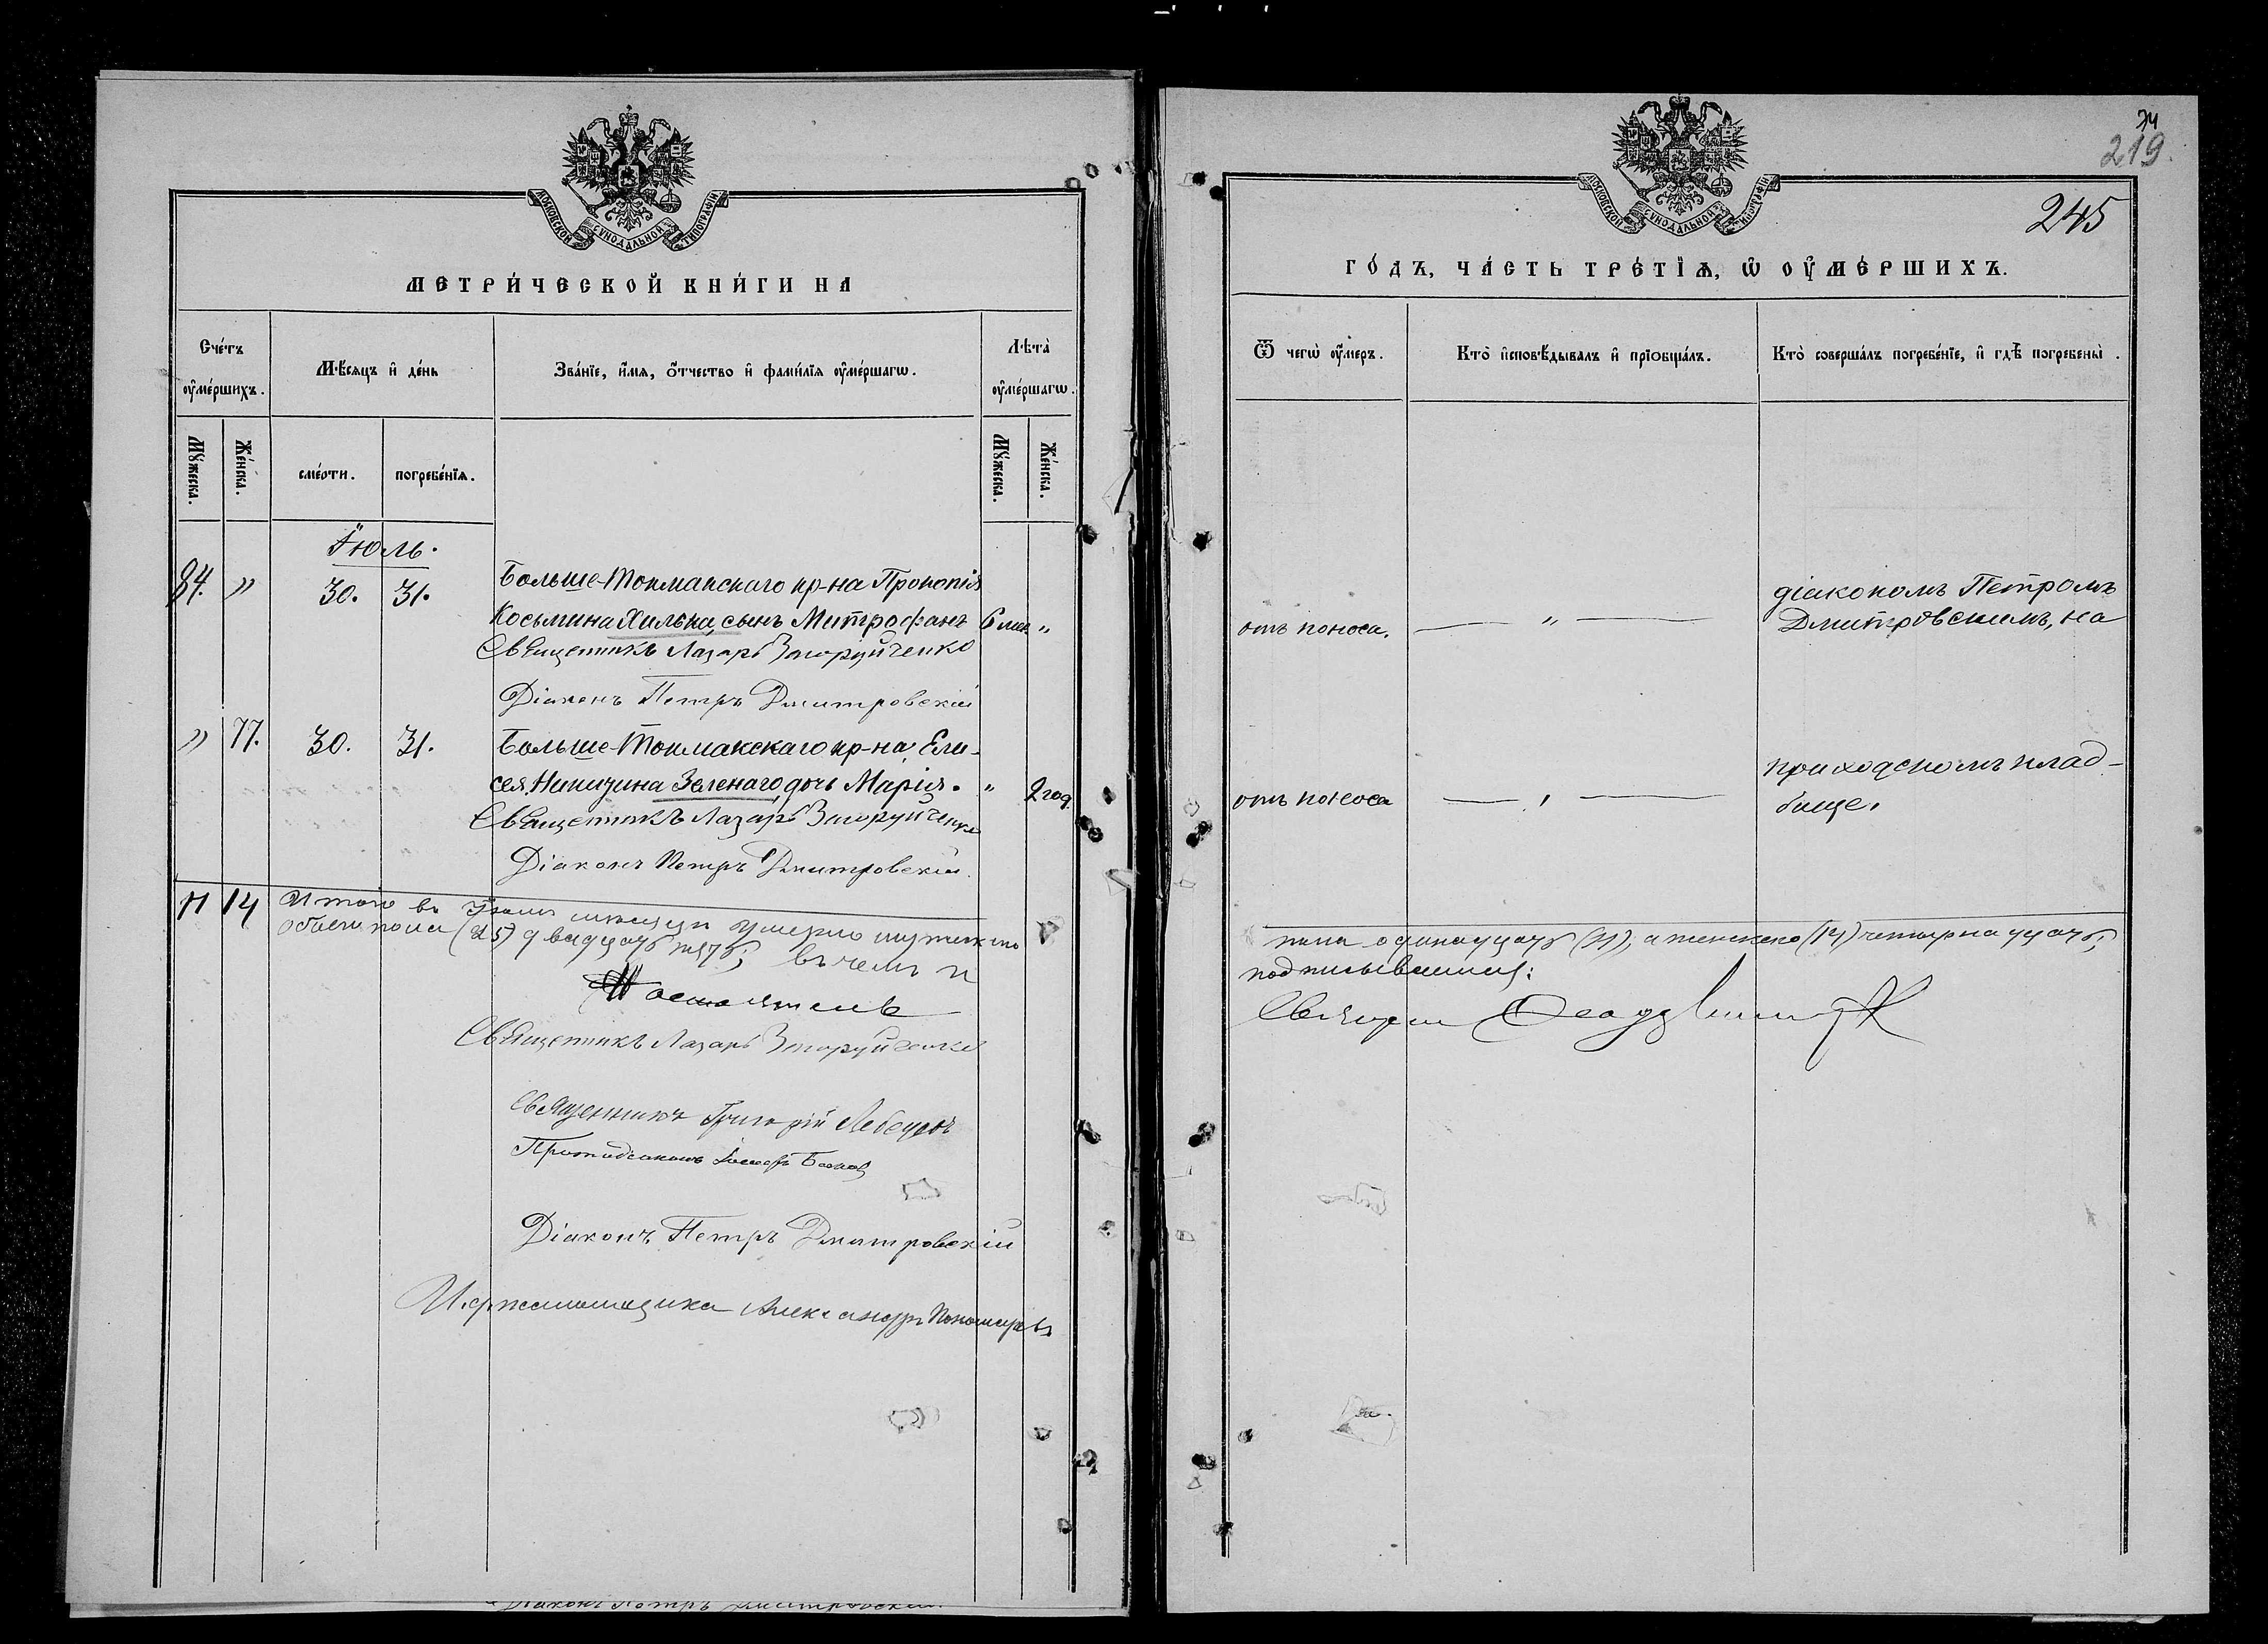 МОСКОВСКОЙ СѴНОДАЛЬНОЙ ТИПОГРАФІИ
МЕТРИ́ЧЕСКОЙ КНИ́ГИ НА
Сче́тъ ᲂу҆ме́ршихъ.
Мѣ́сяцъ и҆ де́нь
Зва́нїе, и҆́мѧ, ѻ҆́тчество и҆ фами́лїѧ ᲂу҆ме́ршагѡ.
Лѣ́та ᲂу҆ме́ршагѡ.
Мꙋ́жеска.
Же́нска.
сме́рти.
погребе́нїѧ.
Мꙋ́жеска.
Же́нска.
Іюль.
84. " 30. 31. Больше-Токмакскаго кр-на Прокопія
Косьмина Хилька, сынъ Митрофанъ 6 мѣс. "
Священникъ Лазарь Загоруйченко
Діаконъ Петръ Дмитровскій
" 77. 30. 31. Больше-Токмакскаго кр-на, Ели-
сея Никитина Зеленаго, дочь Марія. " 2 год.
Священникъ Лазарь Загоруйченко
Діаконъ Петръ Дмитровскій.
11 14 Итого въ Іюлѣ мѣсяцѣ умерло мужеска
обоего пола (25) двадцать пять; въ чемъ и
Священникъ Лазарь Загоруйченко
Священникъ Григорій Лебедевъ
Протодіаконъ
Діаконъ Петръ Дмитровскій
И. д. псаломщика Александръ Пономаревъ
Діаконъ Петръ Дмитровскій.
24
219.
245
МОСКОВСКОЙ СѴНОДАЛЬНОЙ ТИПОГРАФІИ
ГО́ДЪ, ЧА́СТЬ ТРЕ́ТЇѦ, Ѡ҆ ОУ҆МЕ́РШИХЪ.
Ѿ чегѡ̀ ᲂу҆́меръ.
Кто̀ и҆сповѣ́дывалъ и҆ прїѻбща́лъ.
Кто̀ соверша́лъ погребе́нїе, и҆ гдѣ̀ погребены̀.
отъ поноса. — " —
діакономъ Петромъ
Дмитровскимъ, на
отъ поноса — " —
приходскомъ клад-
бище.
пола одинадцать (11), а женскаго (14) четырнадцать;
подписываемся: